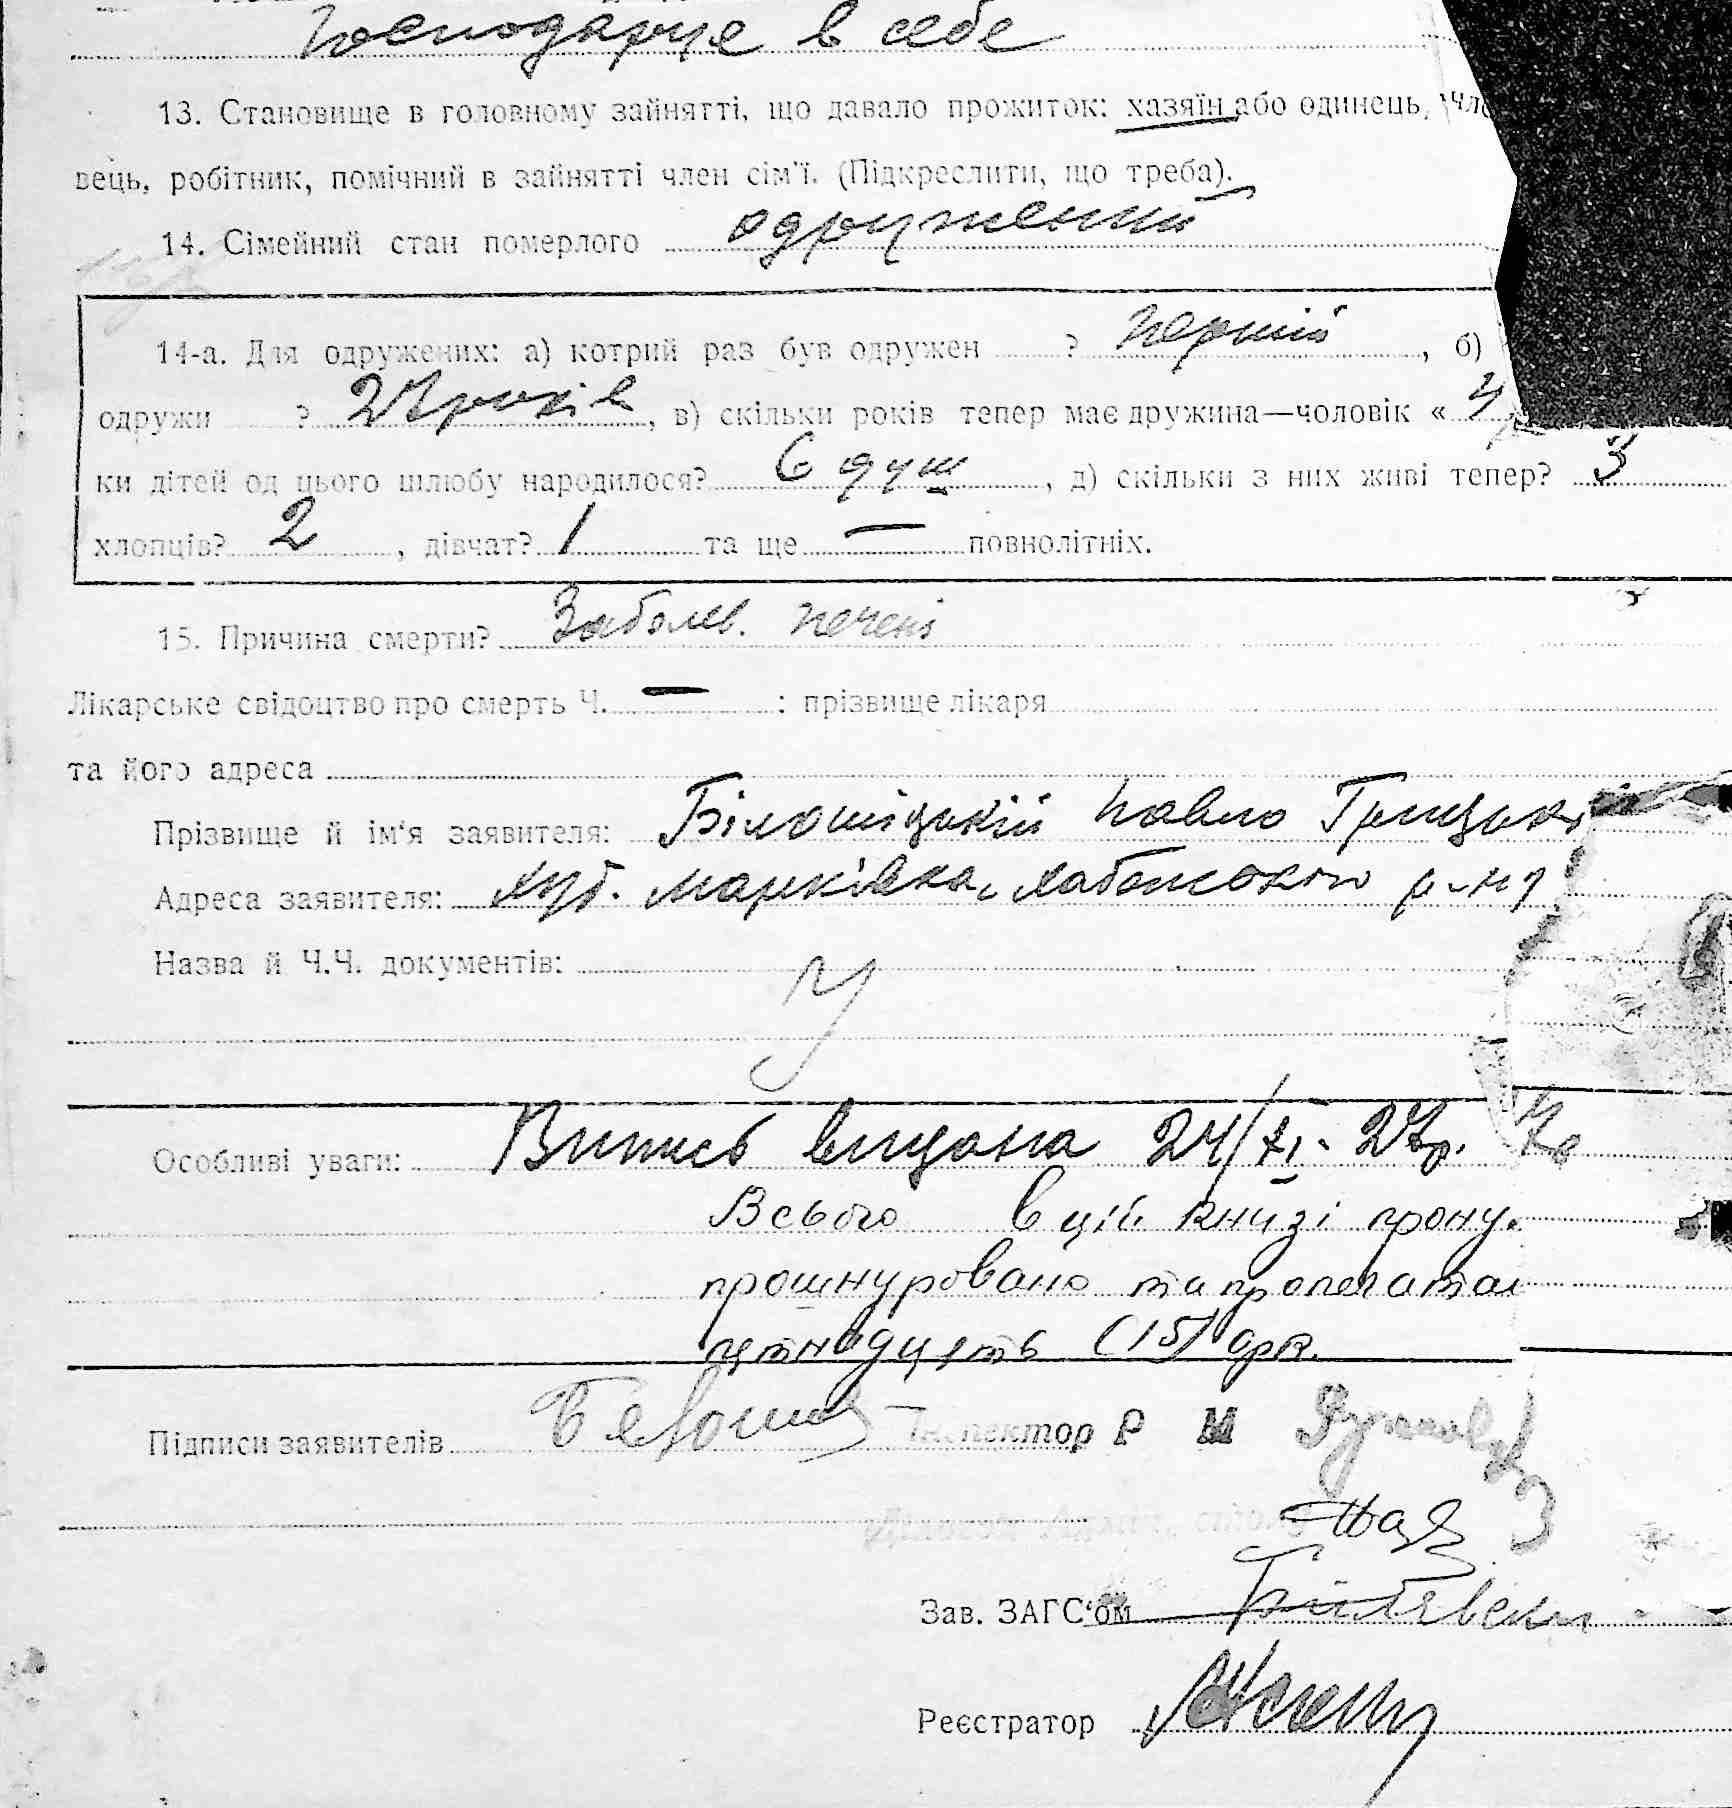 Господарює в себе
13. Становище в головному зайнятті, що давало прожиток: хазяїн або одинець, чле
вець, робітник, помічний в зайнятті член сім'ї. (Підкреслити, що треба).
14. Сімейний стан померлого одружений
14-а. Для одружених: а) котрий раз був одружен ? перший, б)
одружи ? 27 років, в) скільки років тепер має дружина—чоловік « 4
ки дітей од цього шлюбу народилося? 6 душ, д) скільки з них живі тепер? 3
хлопців? 2, дівчат? 1 та ще — повнолітніх.
15. Причина смерти? Заболев. печені
Лікарське свідоцтво про смерть Ч. — : прізвище лікаря
та його адреса
Прізвище й ім'я заявителя: Білошицький Павло Грицьк
Адреса заявителя: хут. Марківка, Хабенського р-ну
Назва й Ч.Ч. документів:
Особливі уваги: Випись видана 24/XI - 27р.
Всього в цій книзі прону.
прошнуровано та пропечатан
пятнадцять (15) арк.
Підписи заявителів Белошиц Інспектор Р М
Зав. ЗАГС'ом
Реєстратор